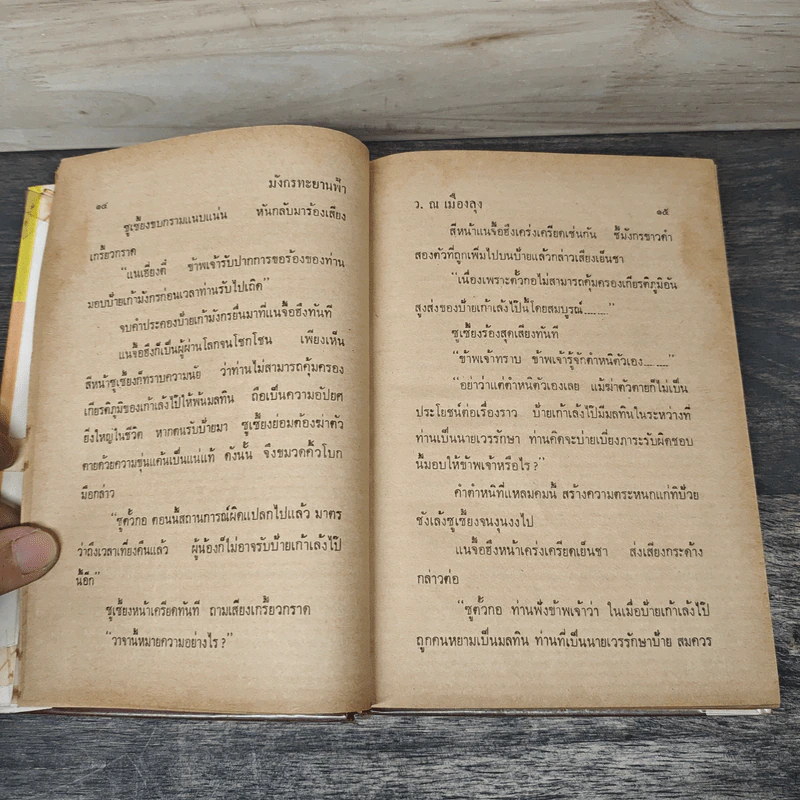 มังกรทะยานฟ้า
๑๔
ซูเซี้ยงขบกรามแนบแน่น หันกลับมาร้องเสียง
เกรี้ยวกราด
“แนเฮี่ยงตี๋ ข้าพเจ้ารับปากการขอร้องของท่าน
มอบป้ายเก้ามังกรก่อนเวลาท่านรับไปเถิด”
จบคำประคองป้ายเก้ามังกรยื่นมาที่แนจื้อฮึงทันที
แนจื้อฮึงก็เป็นผู้ผ่านโลกจนโชกโชน เพียงเห็น
สีหน้าซูเซี้ยงก็ทราบความนัย ว่าท่านไม่สามารถคุ้มครอง
เกียรติภูมิของเก้าเล้งโป๊ให้พ้นมลทิน ถือเป็นความอัปยศ
ยิ่งใหญ่ในชีวิต หากตนรับป้ายมา ซูเซี้ยงย่อมต้องฆ่าตัว
ตายด้วยความขุ่นแค้นเป็นแน่แท้ ดังนั้น จึงขมวดคิ้วโบก
มือกล่าว
“ซูตั้วกอ ตอนนี้สถานการณ์ผิดแปลกไปแล้ว มาตร
ว่าถึงเวลาเที่ยงคืนแล้ว ผู้น้องก็ไม่อาจรับป้ายเก้าเล้งโป๊
นี้อีก”
ซูเซี้ยงหน้าเครียดทันที ถามเสียงเกรี้ยวกราด
“วาจานี้หมายความอย่างไร ?”
ว. ณ เมืองลุง
๑๕
สีหน้าแนจื้อฮึงเคร่งเครียดเช่นกัน ชี้มังกรขาวดำ
สองตัวที่ถูกเพิ่มไปบนป้ายแล้วกล่าวเสียงเย็นชา
“เนื่องเพราะตั้วกอไม่สามารถคุ้มครองเกียรติภูมิอัน
สูงส่งของป้ายเก้าเล้งโป๊นี้โดยสมบูรณ์.........”
ซูเซี้ยงร้องสุดเสียงทันที
“ข้าพเจ้าทราบ ข้าพเจ้ารู้จักตำหนิตัวเอง.........”
“อย่าว่าแต่ตำหนิตัวเองเลย แม้ฆ่าตัวตายก็ไม่เป็น
ประโยชน์ต่อเรื่องราว ป้ายเก้าเล้งโป๊มีมลทินในระหว่างที่
ท่านเป็นนายเวรรักษา ท่านคิดจะบ่ายเบี่ยงภาระรับผิดชอบ
นี้มอบให้ข้าพเจ้าหรือไร ?”
คำตำหนิที่แหลมคมนี้ สร้างความตระหนกแก่ทิป้วย
ซังเล้งซูเซี้ยงจนงุนงงไป
แนจื้อฮึงหน้าเคร่งเครียดเย็นชา ส่งเสียงกระด้าง
กล่าวต่อ
“ซูตั้วกอ ท่านฟังข้าพเจ้าว่า ในเมื่อป้ายเก้าเล้งโป๊
ถูกคนหยามเป็นมลทิน ท่านที่เป็นนายเวรรักษาป้าย สมควร